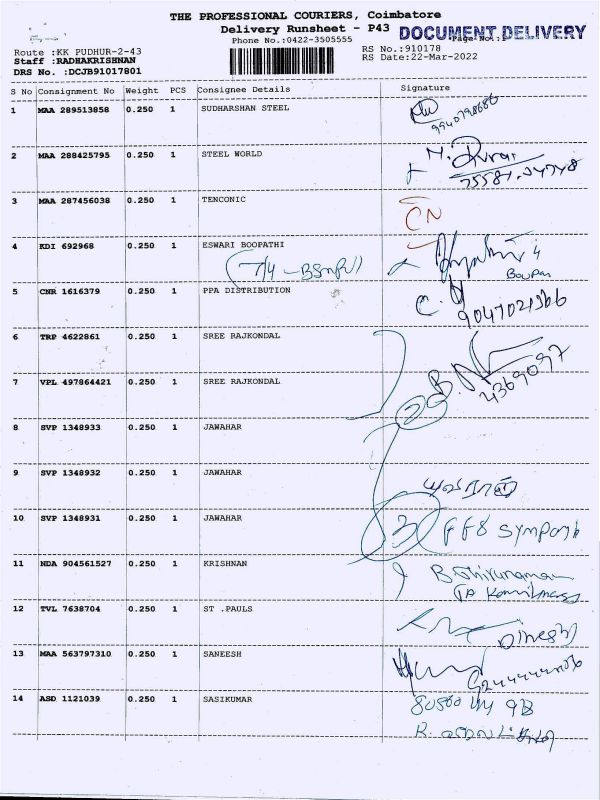 THE PROFESSIONAL COURIERS, Coimbatore
Delivery Runsheet - P43
DOCUMENT DELIVERY
Phone No.:0422-3505555
Route :KK PUDHUR-2-43
RS No.:910178
Staff :RADHAKRISHNAN
RS Date:22-Mar-2022
DRS No. :DCJB91017801
S No Consignment No Weight PCS Consignee Details Signature
1 MAA 289513858 0.250 1 SUDHARSHAN STEEL
9940798686
2 MAA 288425795 0.250 1 STEEL WORLD
3 MAA 287456038 0.250 1 TENCONIC
CN
4 KDI 692968 0.250 1 ESWARI BOOPATHI
5 CNR 1616379 0.250 1 PPA DISTRIBUTION
9047021366
6 TRP 4622861 0.250 1 SREE RAJKONDAL
7 VPL 497864421 0.250 1 SREE RAJKONDAL
4369097
2
8 SVP 1348933 0.250 1 JAWAHAR
9 SVP 1348932 0.250 1 JAWAHAR
10 SVP 1348931 0.250 1 JAWAHAR
3
11 NDA 904561527 0.250 1 KRISHNAN
12 TVL 7638704 0.250 1 ST .PAULS
Dinesh
13 MAA 563797310 0.250 1 SANEESH
14 ASD 1121039 0.250 1 SASIKUMAR